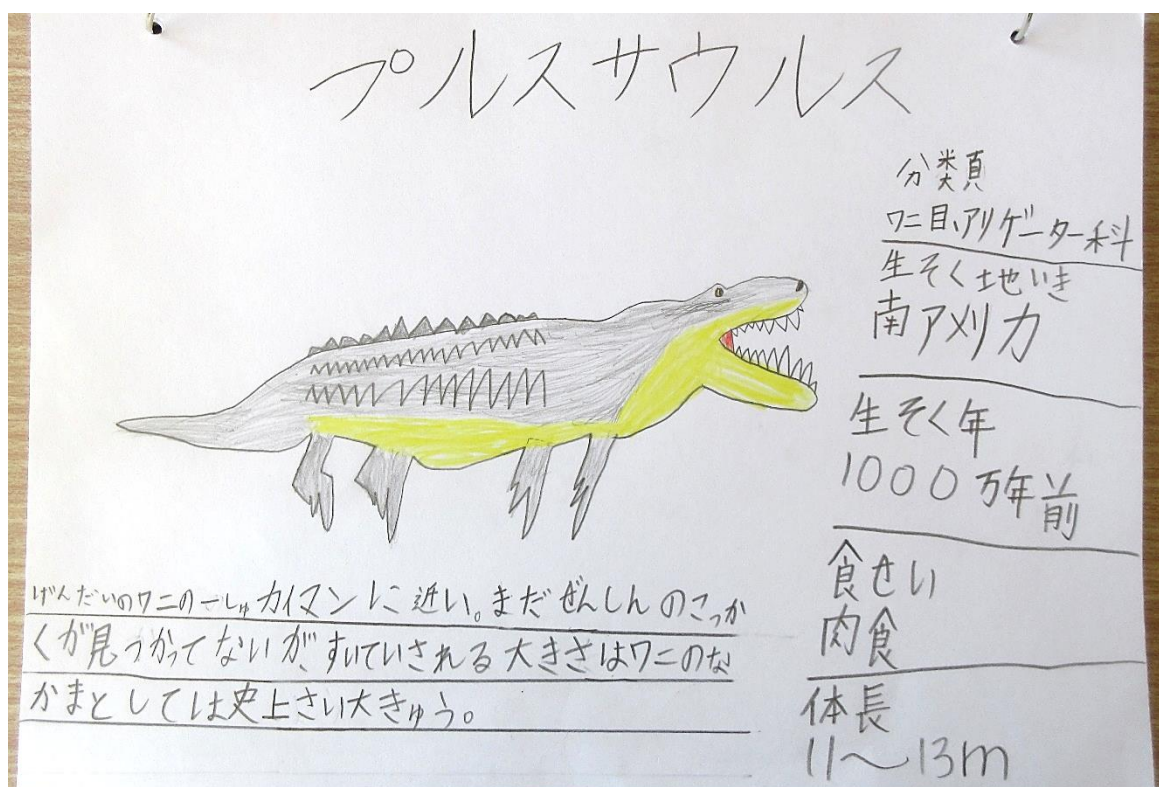 プルスサウルス
分類
ワニ目、アリゲーター科
生そく地いき
南アメリカ
生そく年
1000万年前
食せい
肉食
体長
11〜13m
げんだいのワニの一しゅカイマンに近い。まだぜんしんのこっか
くが見つかってないが、すいていされる大きさはワニのな
かまとしては史上さい大きゅう。